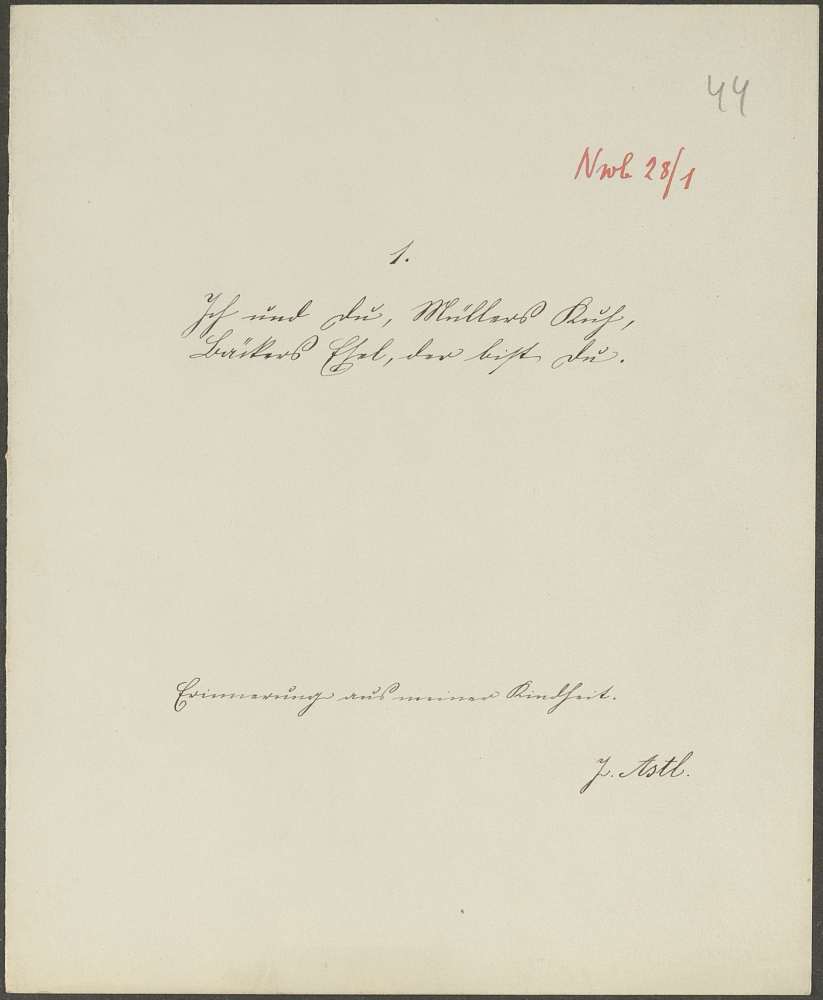 44
Nwb 28/1
1.
Ich und du, Müllers Kuh,
Bäckers Esel, der bist du.
Erinnerung aus meiner Kindheit.
J. Astl.